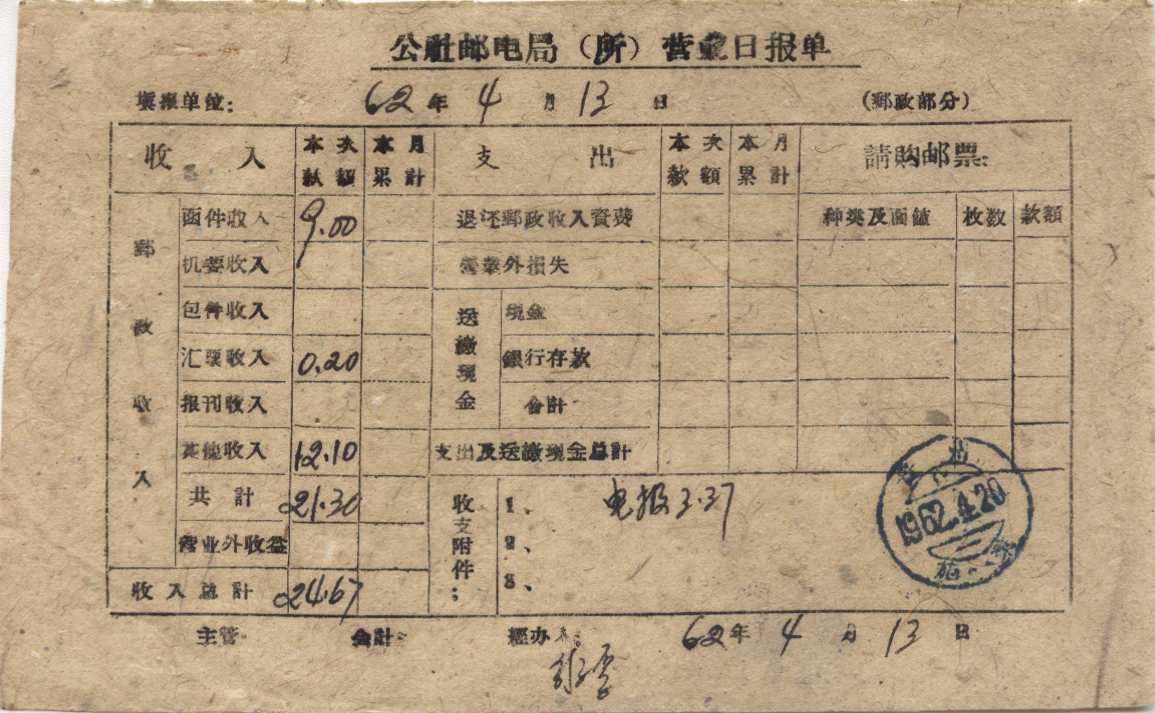 公社邮电局（所）营业日报单
填报单位： 62年4月13日 （郵政部分）
收入 本次款額 本月累計 支出 本次款額 本月累計 請购邮票：
郵政收入 函件收入 9.00 退还郵政收入資费 种类及面值 枚数 款額
机要收入 营業外損失
包件收入 送繳現金 現金
汇票收入 0.20 銀行存款
报刊收入 合計
其他收入 12.10 支出及送繳現金总計
共計 21.30 收支附件； 1、 电报3.37
营业外收益 2、
收入总計 24.67 3、
1962.4.20
主管 会計 經办 62年4月13日